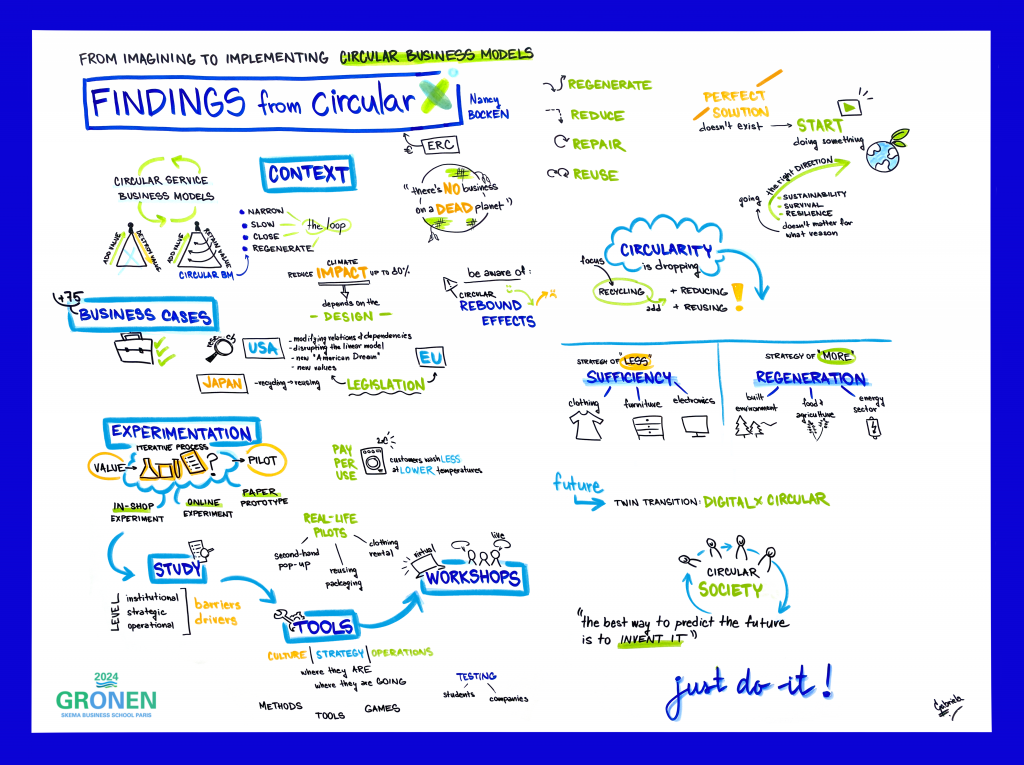 FROM IMAGINING TO IMPLEMENTING CIRCULAR BUSINESS MODELS
FINDINGS from circular X
Nancy
BOCKEN
€ ERC
CIRCULAR SERVICE
BUSINESS MODELS
ADD VALUE
DESTROY VALUE
ADD VALUE
RETAIN VALUE
CIRCULAR BM
CONTEXT
• NARROW
• SLOW
• CLOSE
• REGENERATE
the loop
"there's NO business
on a DEAD planet"
CLIMATE
REDUCE IMPACT UP TO 80%
depends on the
- DESIGN -
be aware of:
CIRCULAR
REBOUND
EFFECTS
REGENERATE
REDUCE
REPAIR
REUSE
PERFECT
SOLUTION
doesn't exist → START
doing something
going
the right DIRECTION
- SUSTAINABILITY
- SURVIVAL
- RESILIENCE
doesn't matter for
what reason
CIRCULARITY
is dropping
focus
RECYCLING
+ REDUCING
add
+ REUSING
!
+75
BUSINESS CASES
USA
- modifying relations & dependencies
- disrupting the linear model
- new "American Dream"
- new values
EU
JAPAN
- recycling → reusing
LEGISLATION
STRATEGY OF "LESS"
SUFFICIENCY
clothing
furniture
electronics
STRATEGY OF "MORE"
REGENERATION
built
environment
food &
agriculture
energy
sector
EXPERIMENTATION
ITERATIVE PROCESS
VALUE
?
PILOT
IN-SHOP
EXPERIMENT
ONLINE
EXPERIMENT
PAPER
PROTOTYPE
PAY
PER
USE
customers wash LESS
at LOWER temperatures
REAL-LIFE
PILOTS
second-hand
pop-up
reusing
packaging
clothing
rental
STUDY
LEVEL
institutional
strategic
operational
barriers
drivers
TOOLS
CULTURE | STRATEGY | OPERATIONS
where they ARE
where they are GOING
METHODS
TOOLS
GAMES
virtual
live
WORKSHOPS
TESTING
students
companies
future
TWIN TRANSITION: DIGITAL X CIRCULAR
CIRCULAR
SOCIETY
"the best way to predict the future
is to INVENT IT"
just do it!
2024
GRONEN
SKEMA BUSINESS SCHOOL PARIS
Gabriela